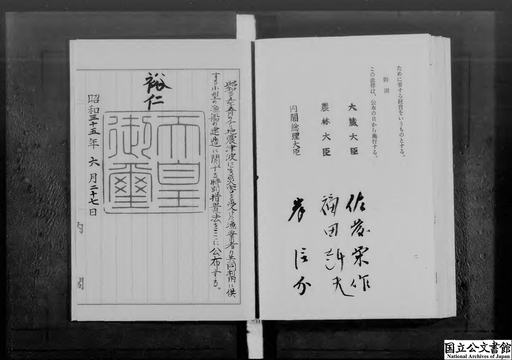 ために要する経費をいうものとする。
附則
この法律は、公布の日から施行する。
大蔵大臣 佐藤栄作
農林大臣 福田赳夫
内閣総理大臣 岸信介
昭和三十五年五月のチリ地震津波による災害を受けた漁業者の共同利用に供
する小型の漁船の建造に関する特別措置法をここに公布する。
裕仁
天皇御璽
昭和三十五年六月二十七日
内閣
国立公文書館
National Archives of Japan